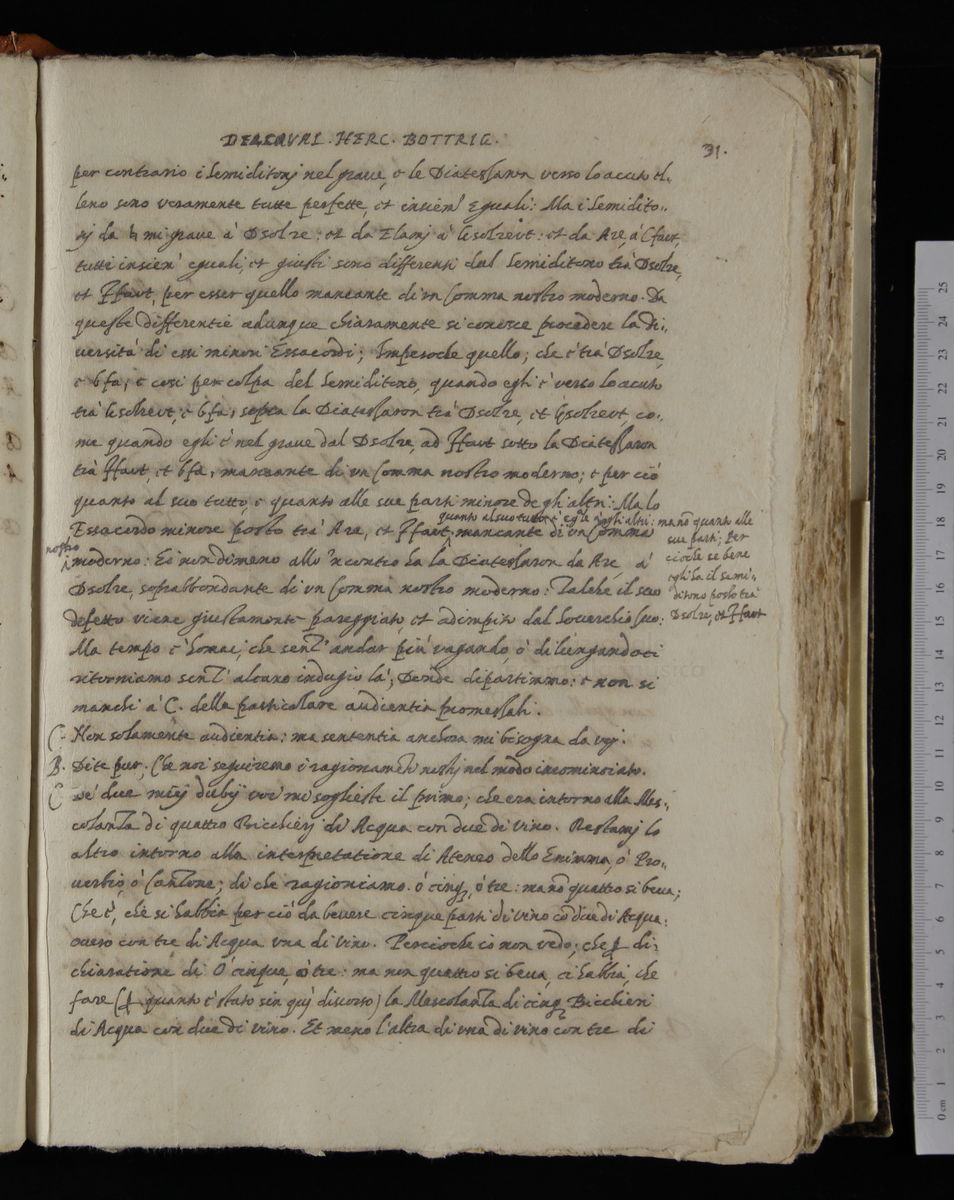 DEL CAVAL. HERC. BOTTRIG.
31.
per contrario i Semiditonj nel graue, e le Diatessaron verso lo acuto El,,
leno sono veramente tutte perfette, et insiem' Eguali: Ma i Semidito,,
nj da ♮ mi graue à Dsolre: et da Elamj à Gsolreut: et da Are, à Cfaut,
tutti insiem' eguali, et giusti sono differenti dal Semiditono trà Dsolre,
et Ffaut, per esser quello mancante di vn Comma nostro moderno. Da
queste differentie adunque chiaramente si conosce procedere la di,,
uersità di essi minori Essacordi; Imperoche quello; che è trà Dsolre,
e bfa; e così per colpa del Semiditono, quando egli è verso lo acuto
trà Gsolreut, e bfa, sopra la Diatessaron trà Dsolre, et Gsolreut, co,,
me quando egli è nel graue dal Dsolre, ad Ffaut sotto la Diatessaron
trà Ffaut, et bfa, mancante di vn Comma nostro moderno; e per ciò
quanto al suo tutto, e quanto alle sue parti minore de gli altri: Ma lo
Essacordo minore posto trà Are, et Ffaut, mancante di vn Comma
quanto al suo tutto è egli à gli altri: ma nõ quanto alle
sue parti; Per
cioche se bene
egli hà il semi,,
ditono posto trà
Dsolre, et Ffaut
nostro
moderno: Ei nondimeno allo 'ncontro hà la Diatessaron da Are à
Dsolre, soprabbondante di vn Comma nostro moderno: Talche il suo
defetto viene giustamente pareggiato, et adimpito dal souerchio suo:
Ma tempo è homai, che senz' andar più vagando, ò dilungandoci
ritorniamo senz' alcuno indugio là, Donde dipartimmo: e non si
manchi à C. della particolare audientia promessali.
C. Non solamente audientia: ma sententia anchora mi bisogna da voj.
B. Dite pur. Che noi seguiremo i ragionamẽti nostrj nel modo incominciato.
C. De' due miej dubij voi mi soglieste il primo; che era intorno alla Mes,,
colanza di quattro Bicchierj di Acqua con due di vino. Restamj lo
altro intorno alla interpretatione di Ateneo dello Enimma, ò Pro,,
uerbio, ò Canzone; di che ragioniamo. ò cinq, ò tre: ma nõ quattro si beua;
Che è, che si habbia per ciò da beuere cinque parti di vino cõ due di Acqua:
ouero con tre di Acqua vna di vino. Percioche io non vedo; che ꝑ di:
chiaratione di O' cinque, ò tre: ma non quattro si beua, ci habbia, che
fare (ꝑ quanto è stato sin quì discorso) la Mescolanza di cinq Bicchieri
di Acqua con due di vino. Et meno l'altra di vna di vino con tre di